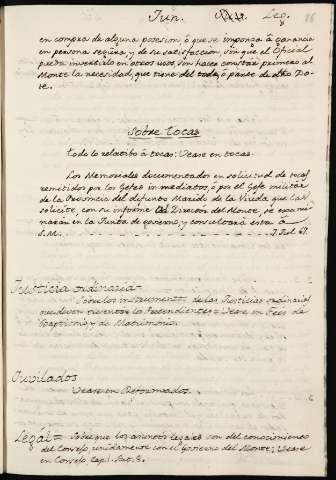 Jun. Leg. 26
en compra de alguna posesion, ó que se imponga á ganancia
en persona segura, y de su satisfaccion, sin que el Oficial
pueda invertirlo en otros usos, sin hacer constar primero al
Monte la necesidad, que tiene del todo, ó parte de dho Do-
te.
Sobre tocas
todo lo relatibo á tocas: Vease en tocas.
Los Memoriales documentados en solicitud de tocas
remitidos por los Gefes inmediatos, ó por el Gefe militar
de la Provincia del difunto Marido de la Viuda que las
solicite, con su informe al Director del Monte, se exami-
narán en la Junta de govierno, y consultará esta á
S.M.
Justicia ordinaria=
Sobre los instrumentos de las Justicias ordinarias
que deven presentar los Pretendientes= Vease en Fees de
Baptismo, y de Matrimonio.
Jubilados
Vease en Reformados.
Legál= Sobre que los asuntos legales son del conocimiento
del Consejo, unidamente con el Govierno del Monte; Vease
en Consejo, Cap. 1. Art. 8.